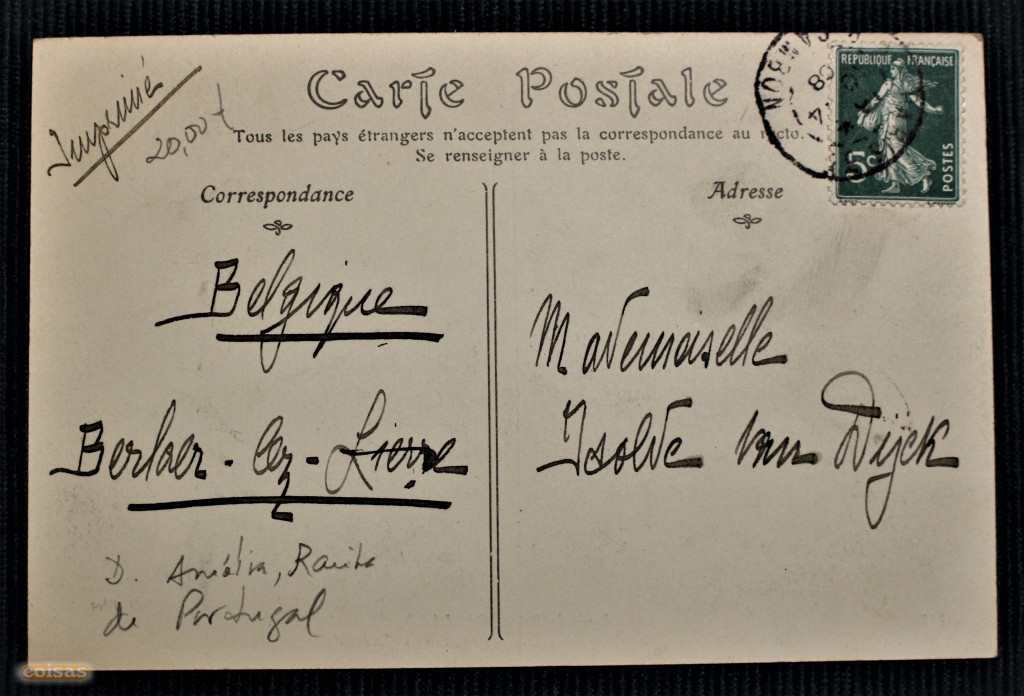 Carte Postale
Imprimé
20,00 €
Tous les pays étrangers n'acceptent pas la correspondance au recto.
Se renseigner à la poste.
REPUBLIQUE FRANÇAISE
5c
POSTES
Correspondance
Belgique
Berlaer-lez-Lierre
D. Amélia, Rainha
de Portugal
Adresse
Mademoiselle
Isolde van Dijck
coisas